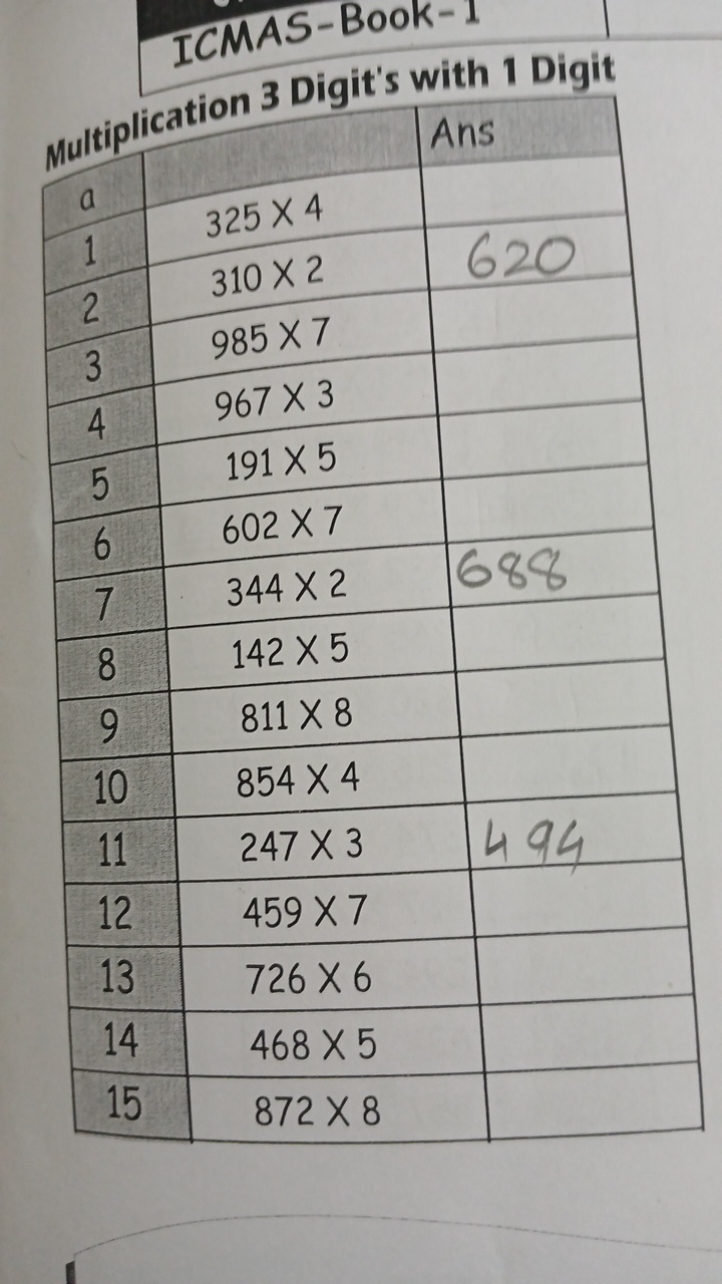 ICMAS-Book-1
Multiplication 3 Digit's with 1 Digit
a Ans
1 325 X 4
2 310 X 2 620
3 985 X 7
4 967 X 3
5 191 X 5
6 602 X 7
7 344 X 2 688
8 142 X 5
9 811 X 8
10 854 X 4
11 247 X 3 494
12 459 X 7
13 726 X 6
14 468 X 5
15 872 X 8